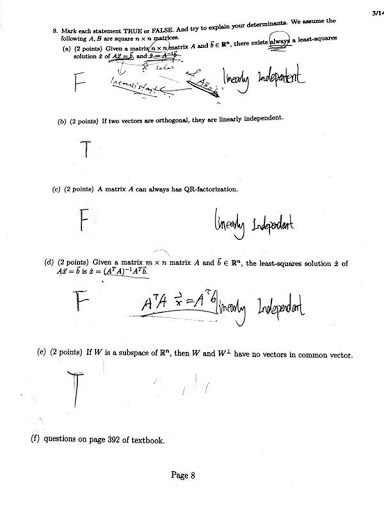 3/14
8. Mark each statement TRUE or FALSE. And try to explain your determinants. We assume the
following A, B are square n × n matrices.
(a) (2 points) Given a matrix n × n matrix A and b⃗ ∈ Rⁿ, there exists always a least-squares
solution x̂ of Ax⃗ = b⃗, and
F
Inconsistent
linearly Independent
(b) (2 points) If two vectors are orthogonal, they are linearly independent.
T
(c) (2 points) A matrix A can always has QR-factorization.
F linearly Independent
(d) (2 points) Given a matrix m × n matrix A and b⃗ ∈ Rⁿ, the least-squares solution x̂ of
Ax⃗ = b⃗ is x̂ = (AᵀA)⁻¹Aᵀb⃗.
F AᵀA x̂ = Aᵀb linearly Independent
(e) (2 points) If W is a subspace of Rⁿ, then W and W⊥ have no vectors in common vector.
T
(f) questions on page 392 of textbook.
Page 8